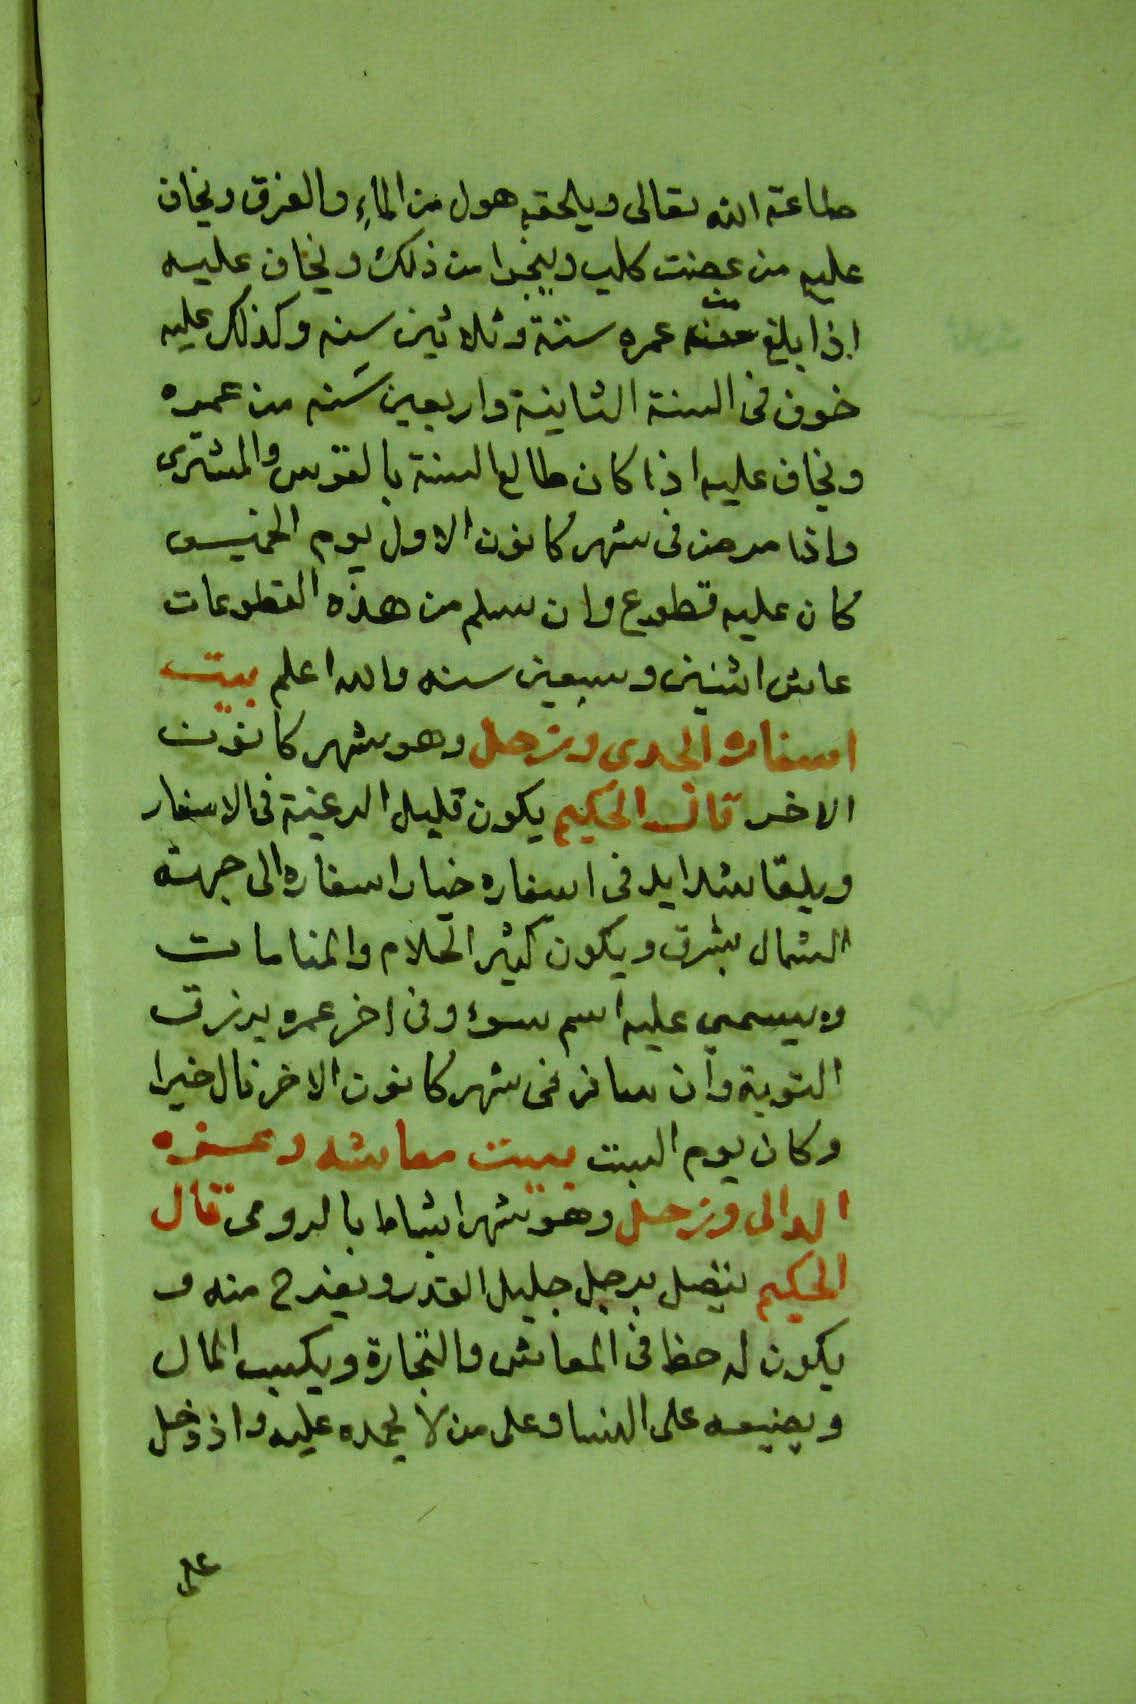 طاعته الله تعالى ويلحقه هول من الماءِ والغرق ويخاف
عليه من عضت كلب وينجوا من ذلك ويخاف عليه
اذا بلغ من عمره ستة وثلاثين سنه وكذلك عليه
خوف فى السنة الثانية واربعين سنه من عمره
ويخاف عليه اذا كان طالع السنة بالقوس والمشترى
واذا مرض فى شهر كانون الاول يوم الخميس
كان عليه قطوع وان سلم من هذه القطوعات
عاش اثنين وسبعين سنه والله اعلم بيت
اسفاره الجدى وزحل وهو شهر كانون
الاخر قال الحكيم يكون قليل الرغبة فى الاسفار
ويلقا شدايد فى اسفاره خيار اسفاره الى جهة
الشمال بشرق ويكون كثير احلام والمنامات
ويسمى عليه اسم سوء وفى اخر عمره يرزق
التوبة وان سافر فى شهر كانون الاخر نال خيرا
وكان يوم السبت بيت معاشه وعزه
الدالى وزحل وهو شهر اشباط بالرومى قال
الحكيم يتصل برجل جليل القدر ويفرح منه و
يكون له حظا فى المعاش والتجارة ويكسب المال
ويضيعه على النسا وعلى من لا يحمده عليه واذ دخل
على